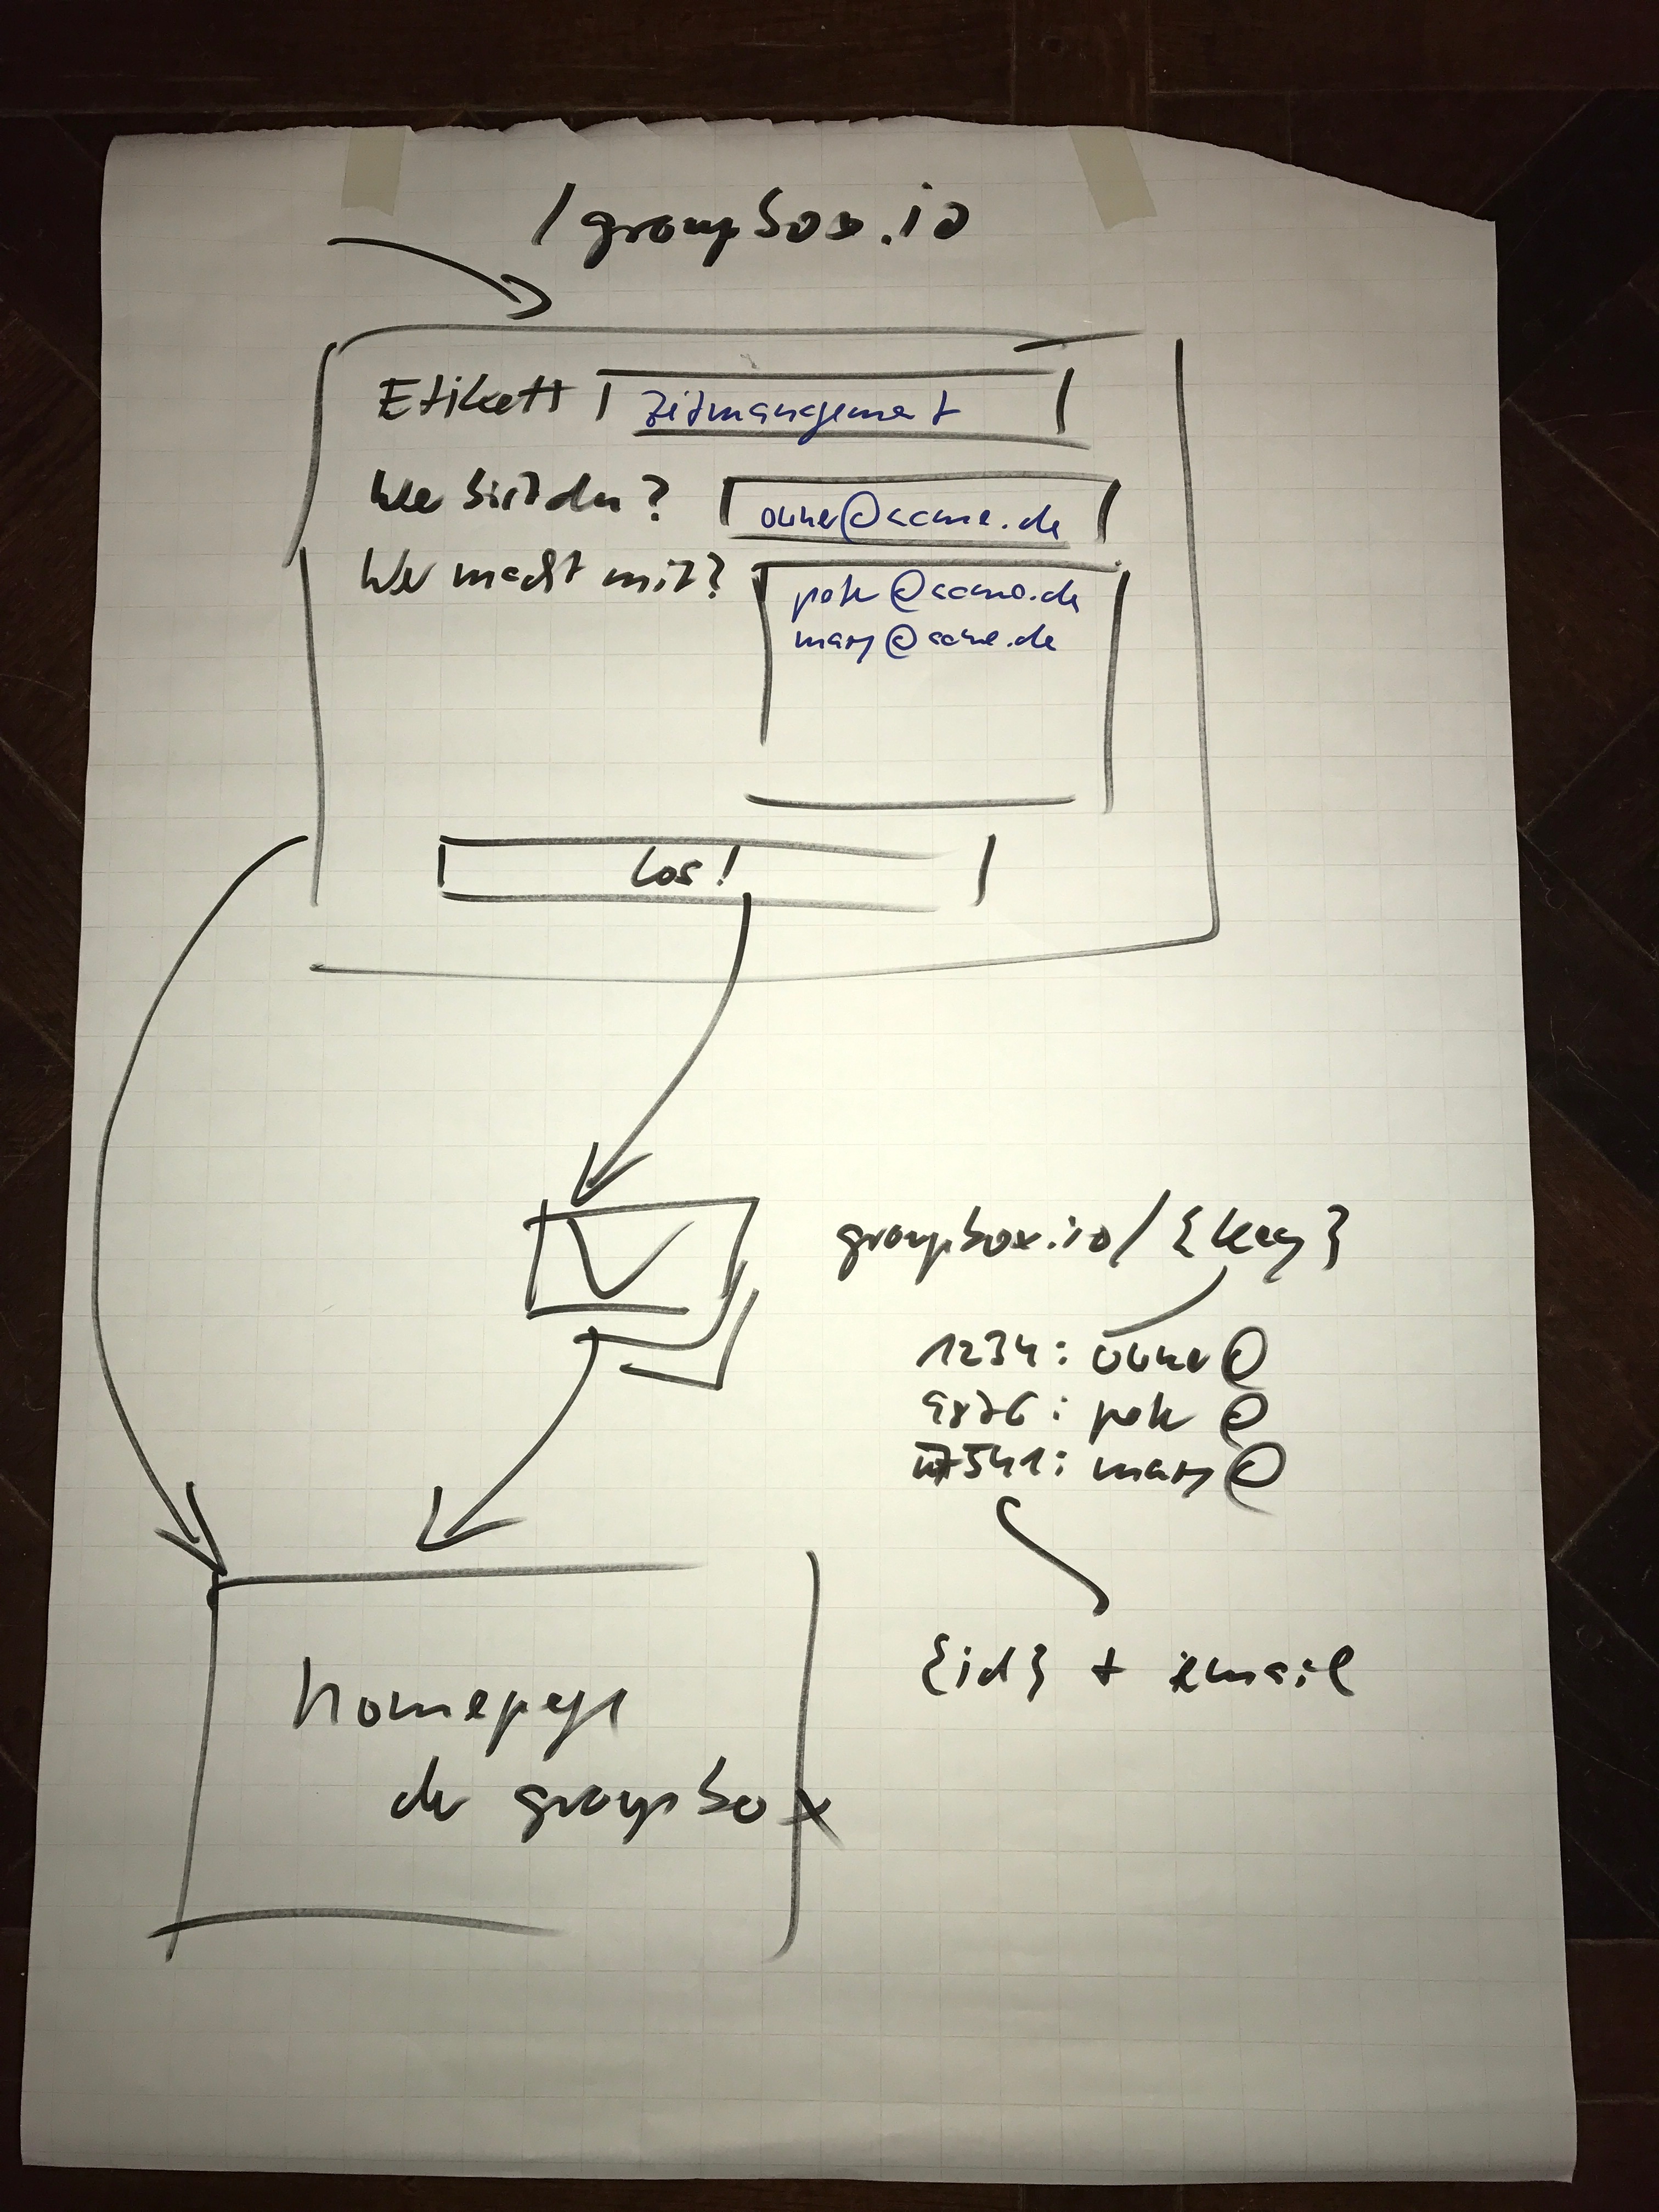 /groupbox.io
Etikett Zeitmanagement
Wer bist du? owner@acme.de
Wer macht mit? pete@acme.de
mary@acme.de
Los!
groupbox.io/{key}
1234: owner@
9876: pete@
7541: mary@
{id} + email
homepage
der groupbox